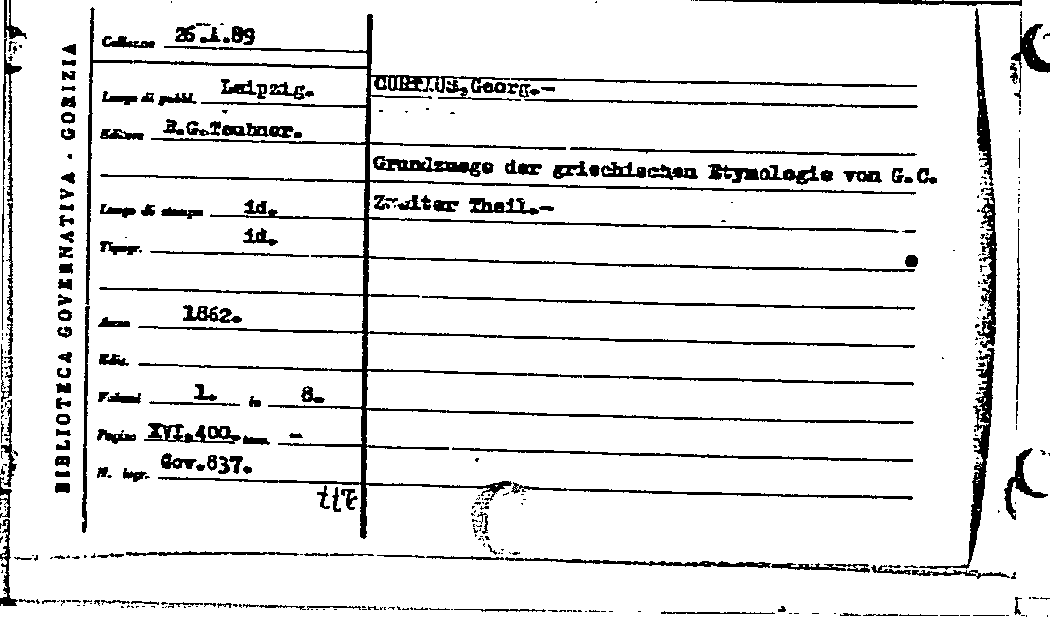 BIBLIOTECA GOVERNATIVA - GORIZIA
Collocaz. 26.I.89
Luogo di pubbl. Leipzig.
Editore B.G.Teubner.
Luogo di stampa id.
Tipogr. id.
Anno 1862.
Ediz.
Volumi 1. in 8.
Pagine XVI,400. tav. -
N. ingr. Gov.837.
CURTIUS,Georg.-
Grundzuege der griechischen Etymologie von G.C.
Zweiter Theil.-